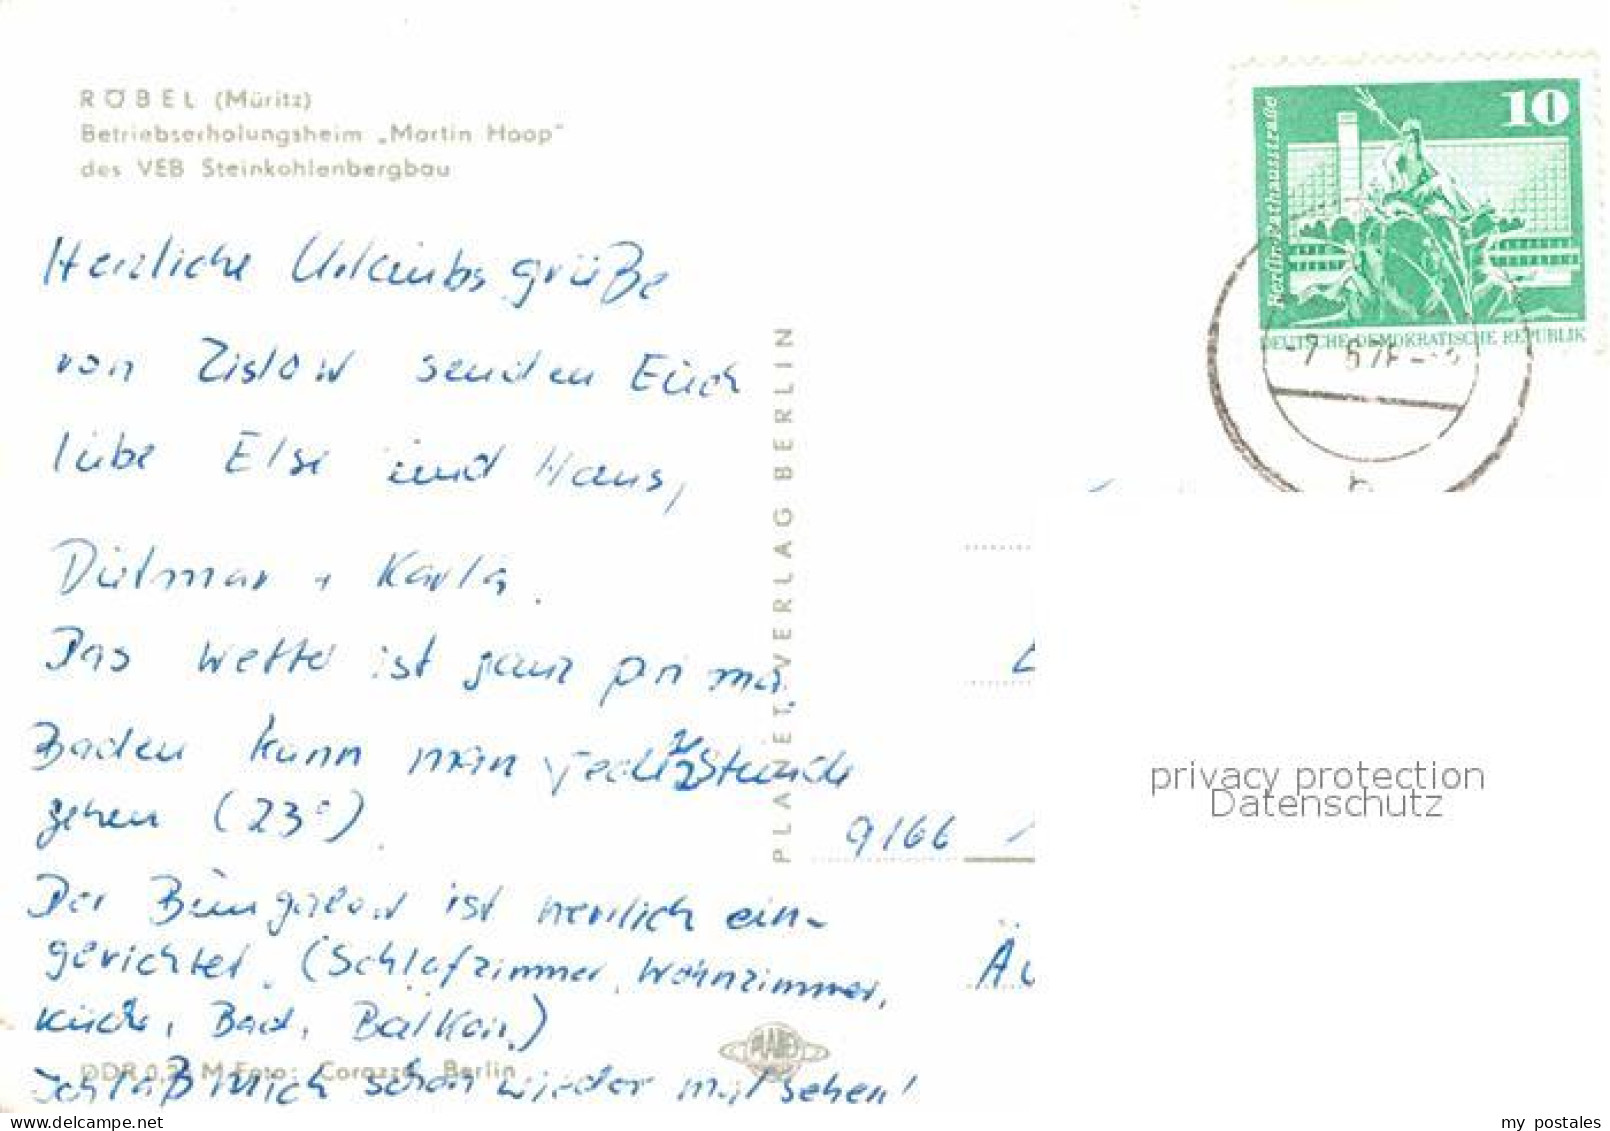 RÖBEL (Müritz)
Betriebserholungsheim „Martin Hoop"
des VEB Steinkohlenbergbau
Herzliche Urlaubsgrüße
von Zislow senden Euch
liebe Else und Hans,
Dietmar + Karla.
Das Wetter ist ganz prima,
Baden kann man jede Stunde
gehen (23°).
Der Bungalow ist herrlich ein-
gerichtet. (Schlafzimmer, Wohnzimmer,
Küche, Bad, Balkon.)
Ich laß mich schon wieder mal sehen!
DDR 0,2 M Foto: Corazza, Berlin
PLANET-VERLAG BERLIN
PLANET
10
Berlin-Rathausstraße
DEUTSCHE DEMOKRATISCHE REPUBLIK
b
9166
privacy protection
Datenschutz
my postales
www.delcampe.net